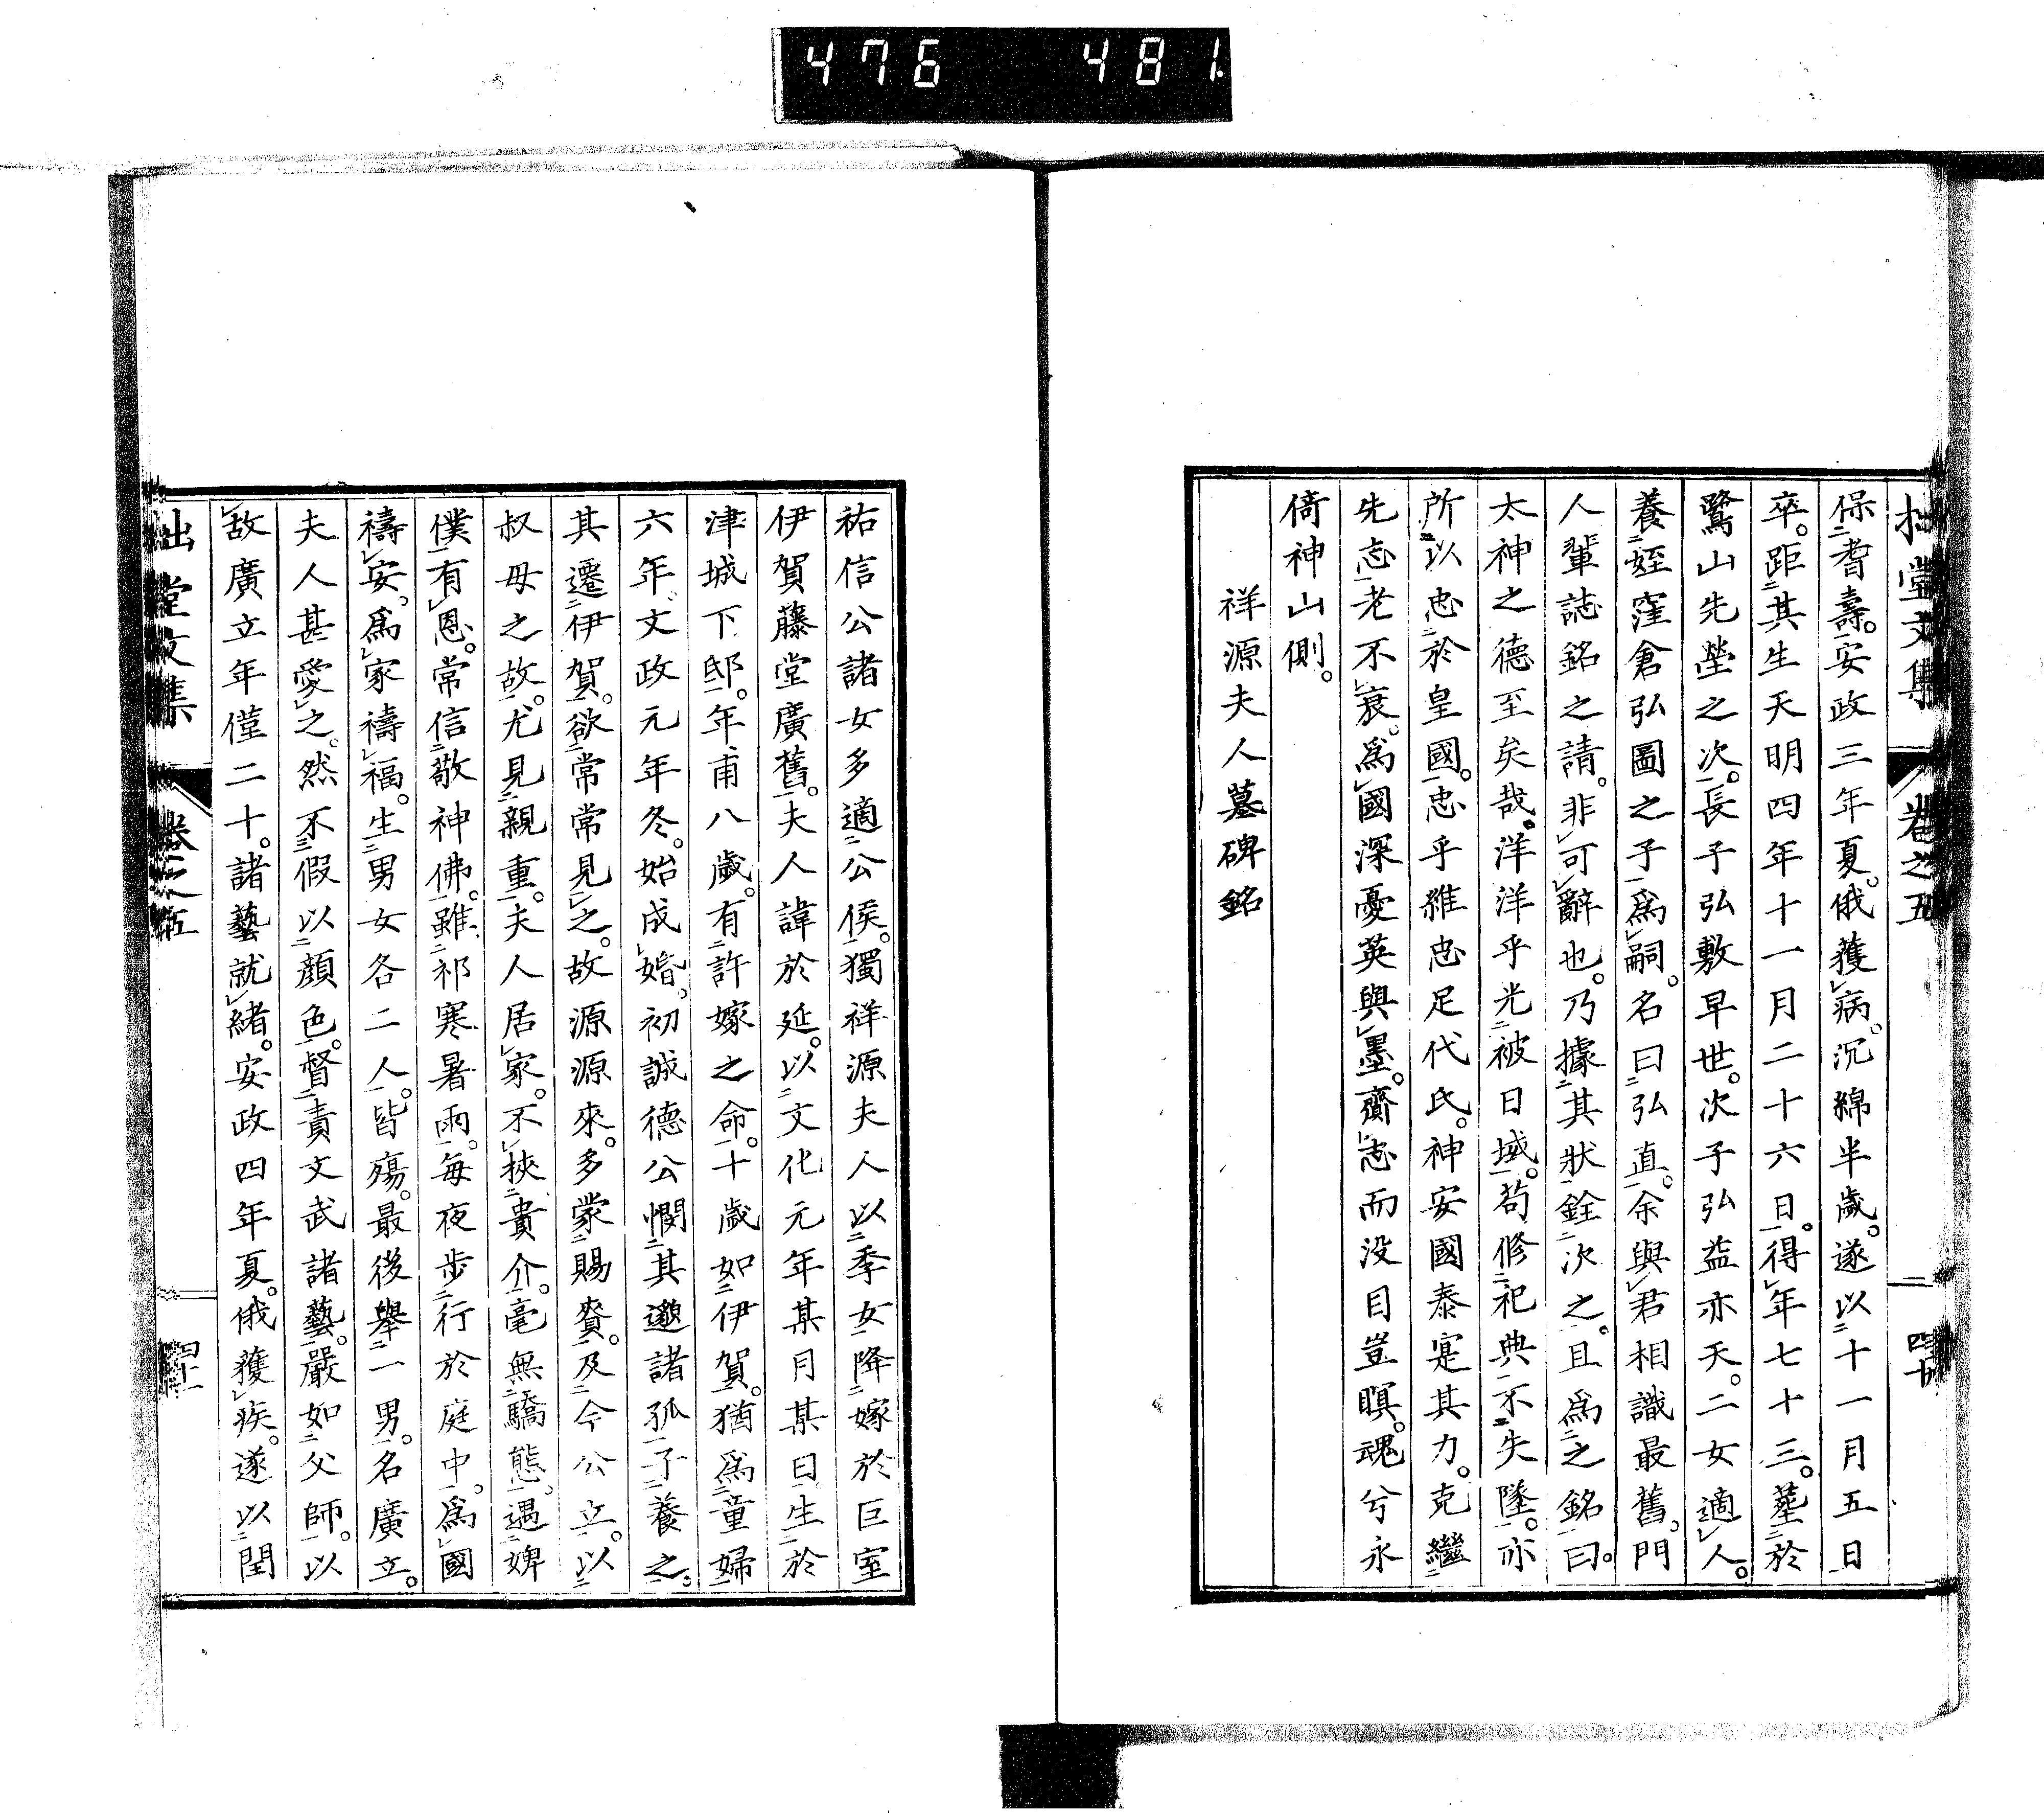 476 481
拙堂文集 卷之五 四十
保耆壽。安政三年夏。俄獲病。沉綿半歲。遂以十一月五日
卒。距其生天明四年十一月二十六日。得年七十三。塟於
鷺山先塋之次。長子弘敷早世。次子弘益亦夭。二女適人。
養姪窪倉弘圖之子爲嗣。名曰弘直。余與君相識最舊。門
人輩誌銘之請。非可辭也。乃據其狀銓次之。且爲之銘曰。
太神之德至矣哉。洋洋乎光被日域。苟修祀典不失墜。亦
所以忠於皇國。忠乎維忠足代氏。神安國泰寔其力。克繼
先志老不衰。爲國深憂英與墨。齎志而没目豈瞑。魂兮永
倚神山側。
祥源夫人墓碑銘
祐信公諸女多適公侯。獨祥源夫人以季女降嫁於巨室
伊賀藤堂廣舊。夫人諱於延。以文化元年某月某日生於
津城下邸。年甫八歲。有許嫁之命。十歲如伊賀。猶爲童婦
六年。文政元年冬。始成婚。初誠德公憫其邈諸孤子養之。
其遷伊賀。欲常常見之。故源源來。多蒙賜賚。及今公立。以
叔母之故。尤見親重。夫人居家。不挾貴介。毫無驕態。遇婢
僕有恩。常信敬神佛。雖祁寒暑雨。每夜步行於庭中。爲國
禱安。爲家禱福。生男女各二人。皆殤。最後舉一男。名廣立。
夫人甚愛之。然不假以顔色。督責文武諸藝。嚴如父師。以
故廣立年僅二十。諸藝就緒。安政四年夏。俄獲疾。遂以閏
拙堂文集 卷之五